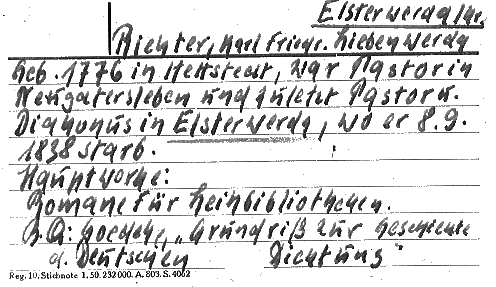 Elsterwerda/Kr.
Richter, Karl Friedr. Liebenwerda
Geb. 1776 in Hettstedt, war Pastor in
Neugatersleben und zuletzt Pastor u.
Diakonus in Elsterwerda, wo er 8.9.
1838 starb.
Hauptwerke:
Romane für Leihbibliotheken.
B.Q: Goedeke, „Grundriß zur Geschichte
d. Deutschen Dichtung"
Reg. 10. Stichnote 1. 50. 232000. A. 803. S. 4062